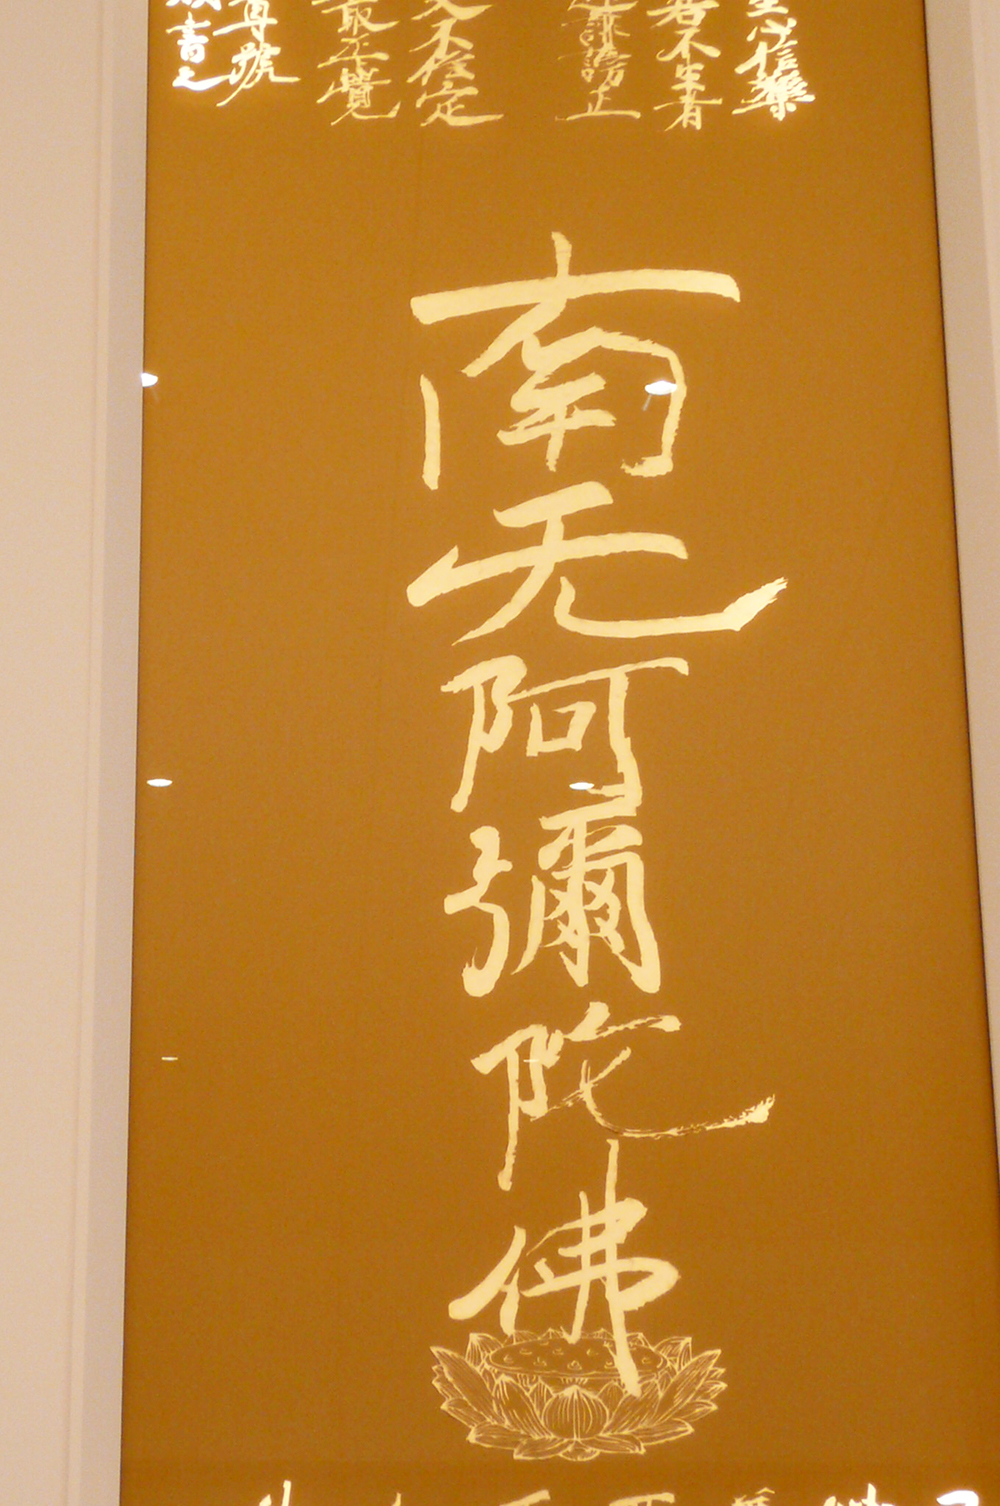 至心信樂
若不生者
逆誹謗正
天不住定
取正覺
尊號
歲書之
南无阿彌陀佛